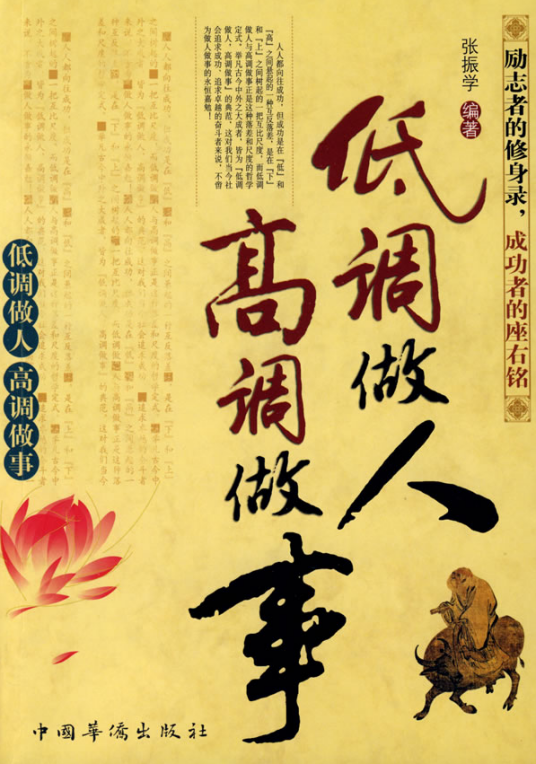 励志者的修身录，成功者的座右铭
张振学 编著
低调做人
高调做事
人人都向往成功，但成功是在『低』和
『高』之间悬起的一种互反落差，是在『下』
和『上』之间树起的一把互比尺度，而低调
做人与高调做事正是这种落差和尺度的哲学
定式。举凡古今中外之大成者，皆为『低调
做人，高调做事』的典范，这对我们当今社
会追求成功、追求卓越的奋斗者来说，不啻
为做人做事的永恒嘉勉！
低调做人 高调做事
中國華僑出版社